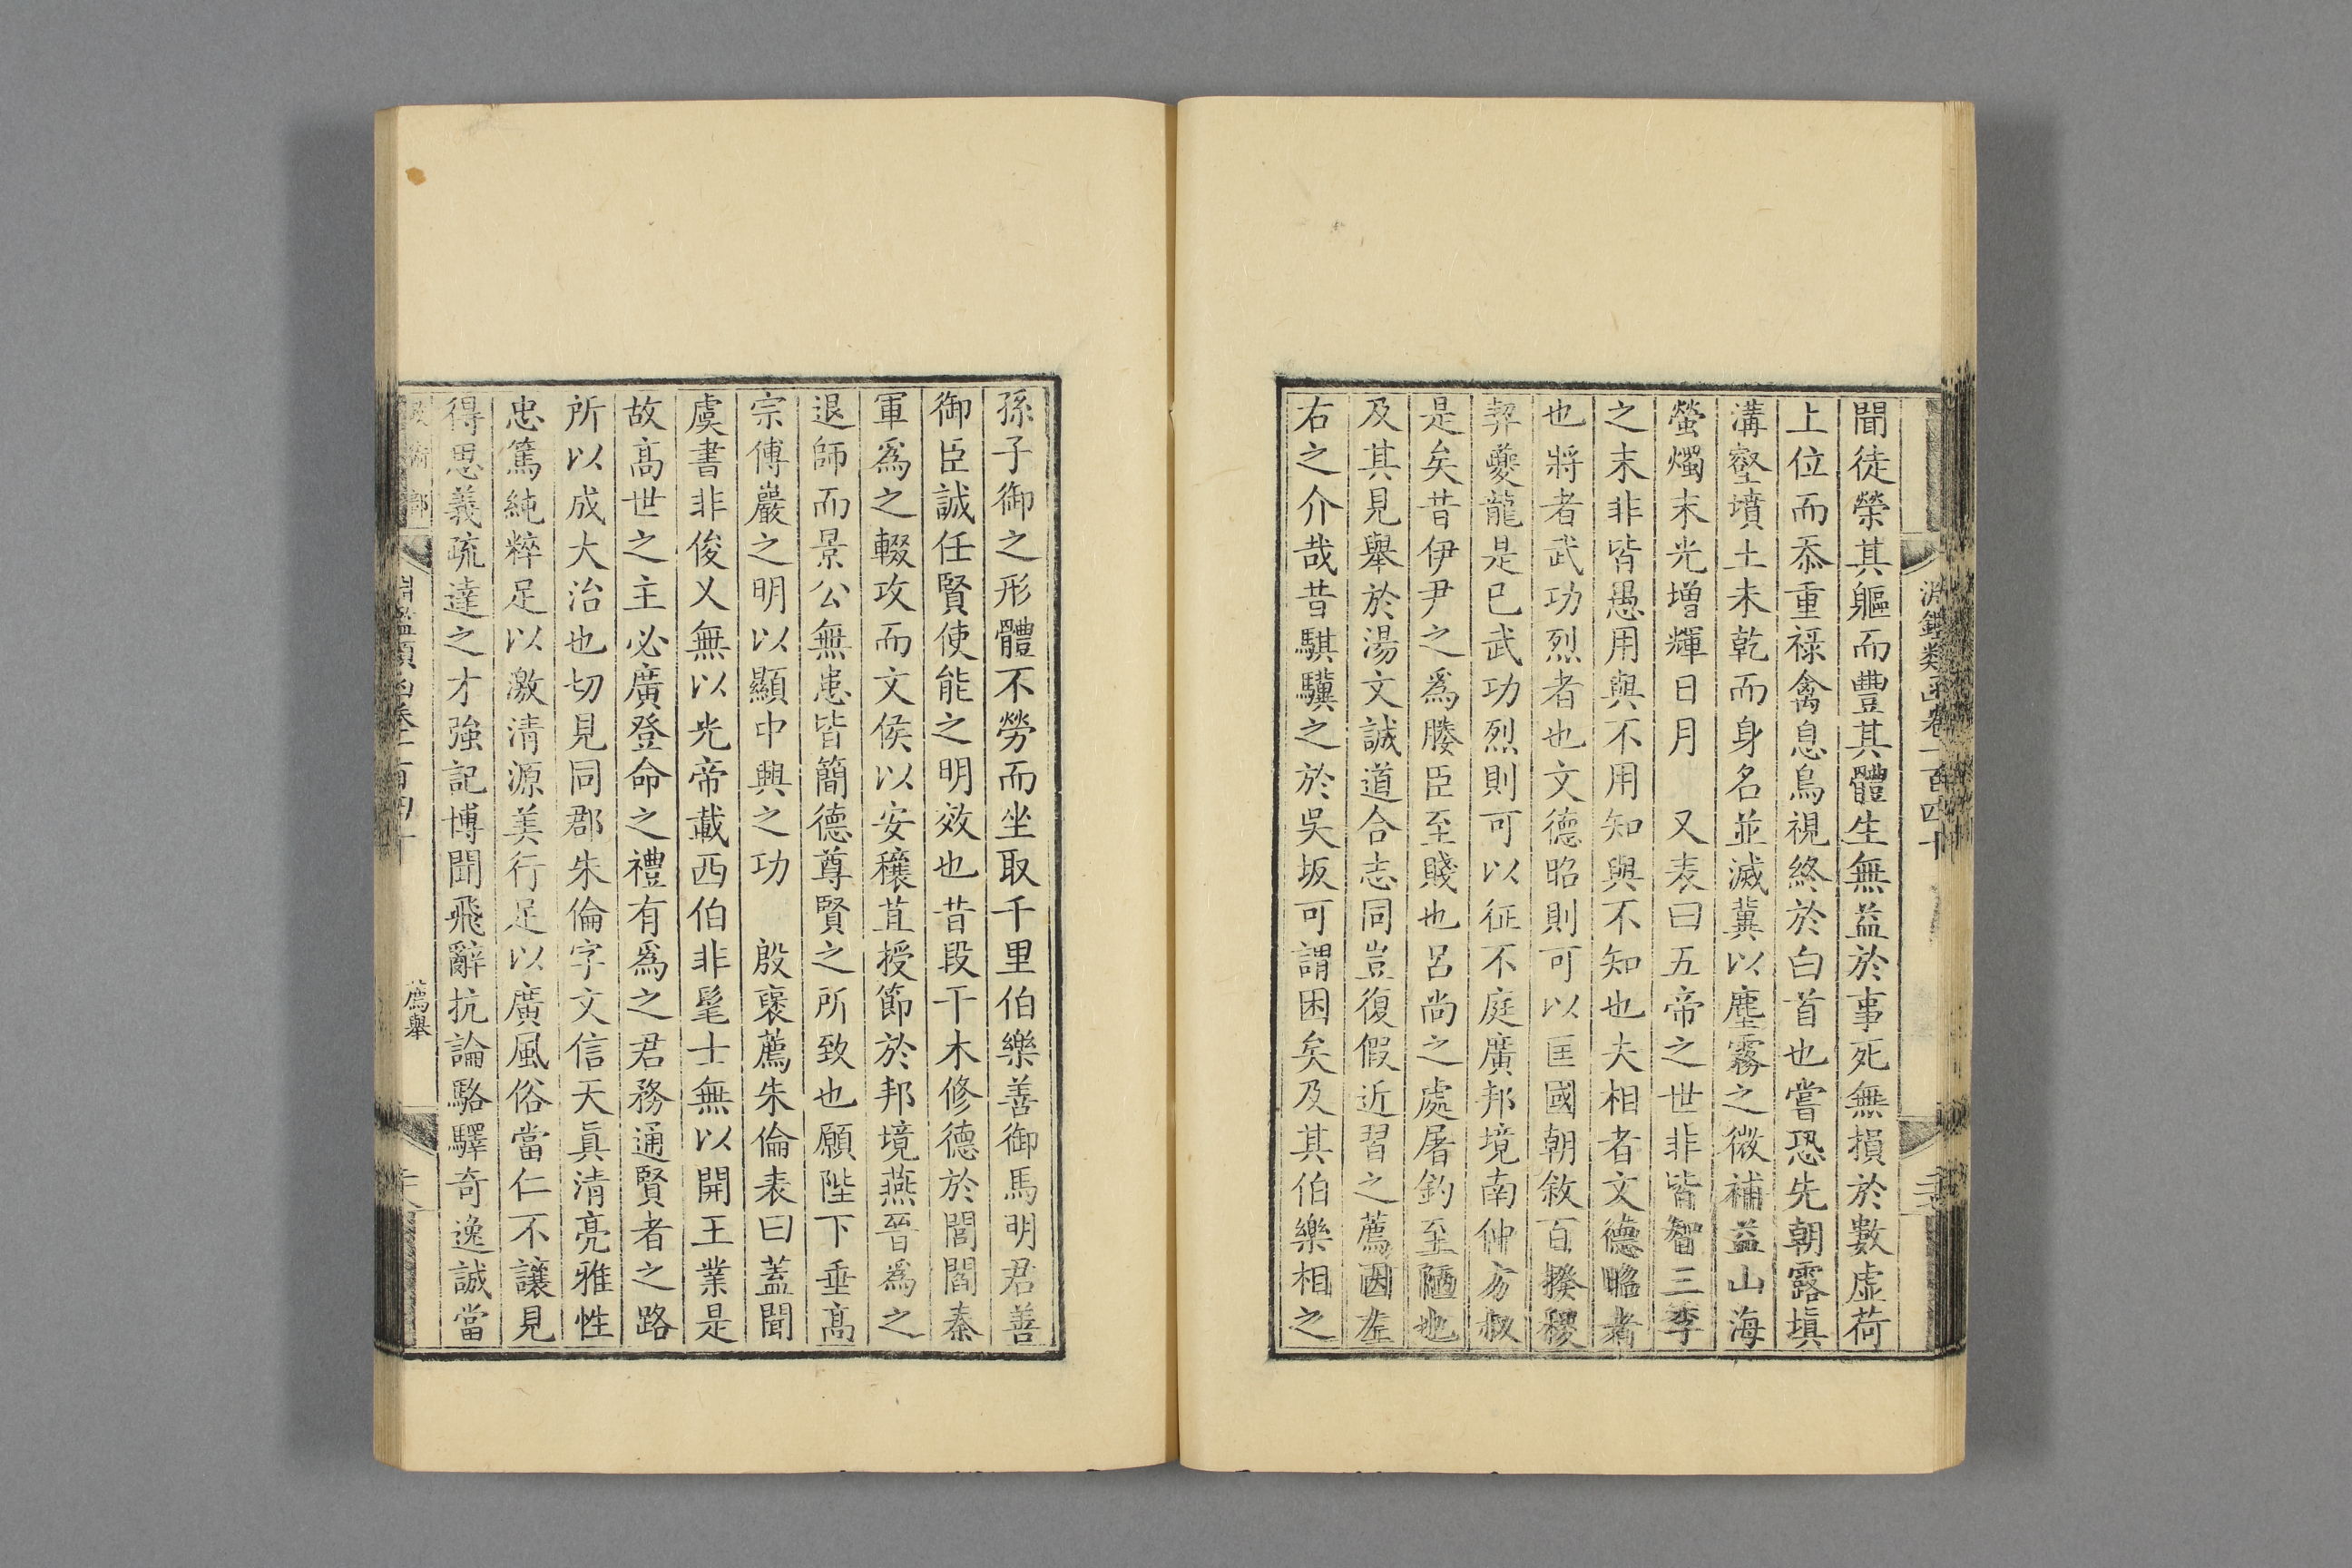 淵鑑類函卷一百四十
聞徒榮其軀而豐其體生無益於事死無損於數虛荷
上位而忝重祿禽息鳥視終於白首也嘗恐先朝露塡
溝壑墳土未乾而身名並滅冀以塵霧之微補益山海
螢燭末光增輝日月　又表曰五帝之世非皆智三季
之末非皆愚用與不用知與不知也夫相者文德昭者
也將者武功烈者也文德昭則可以匡國朝敘百揆稷
契夔龍是已武功烈則可以征不庭廣邦境南仲方叔
是矣昔伊尹之爲媵臣至賤也呂尚之處屠釣至陋也
及其見舉於湯文誠道合志同豈復假近習之薦因左
右之介哉昔騏驥之於吳坂可謂困矣及其伯樂相之
孫子御之形體不勞而坐取千里伯樂善御馬明君善
御臣誠任賢使能之明效也昔段干木修德於閭閻秦
軍爲之輟攻而文侯以安穰苴授節於邦境燕晉爲之
退師而景公無患皆簡德尊賢之所致也願陛下垂高
宗傅巖之明以顯中興之功　殷褒薦朱倫表曰蓋聞
虞書非俊乂無以光帝載西伯非髦士無以開王業是
故高世之主必廣登命之禮有爲之君務通賢者之路
所以成大治也切見同郡朱倫字文信天眞清亮雅性
忠篤純粹足以激清源美行足以廣風俗當仁不讓見
得思義疏達之才強記博聞飛辭抗論駱驛奇逸誠當
淵鑑類函卷一百四十　薦舉